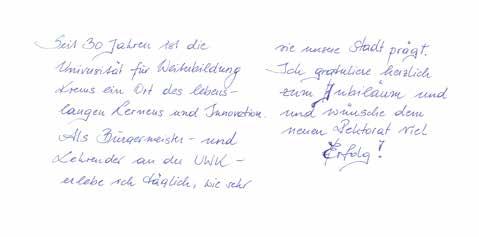 Seit 30 Jahren ist die
Universität für Weiterbildung
Krems ein Ort des lebens-
langen Lernens und Innovation.
Als Bürgermeister – und
Lehrender an der UWK –
erlebe ich täglich, wie sehr
sie unsere Stadt prägt.
Ich gratuliere herzlich
zum Jubiläum und
und wünsche dem
neuen Rektorat viel
Erfolg!